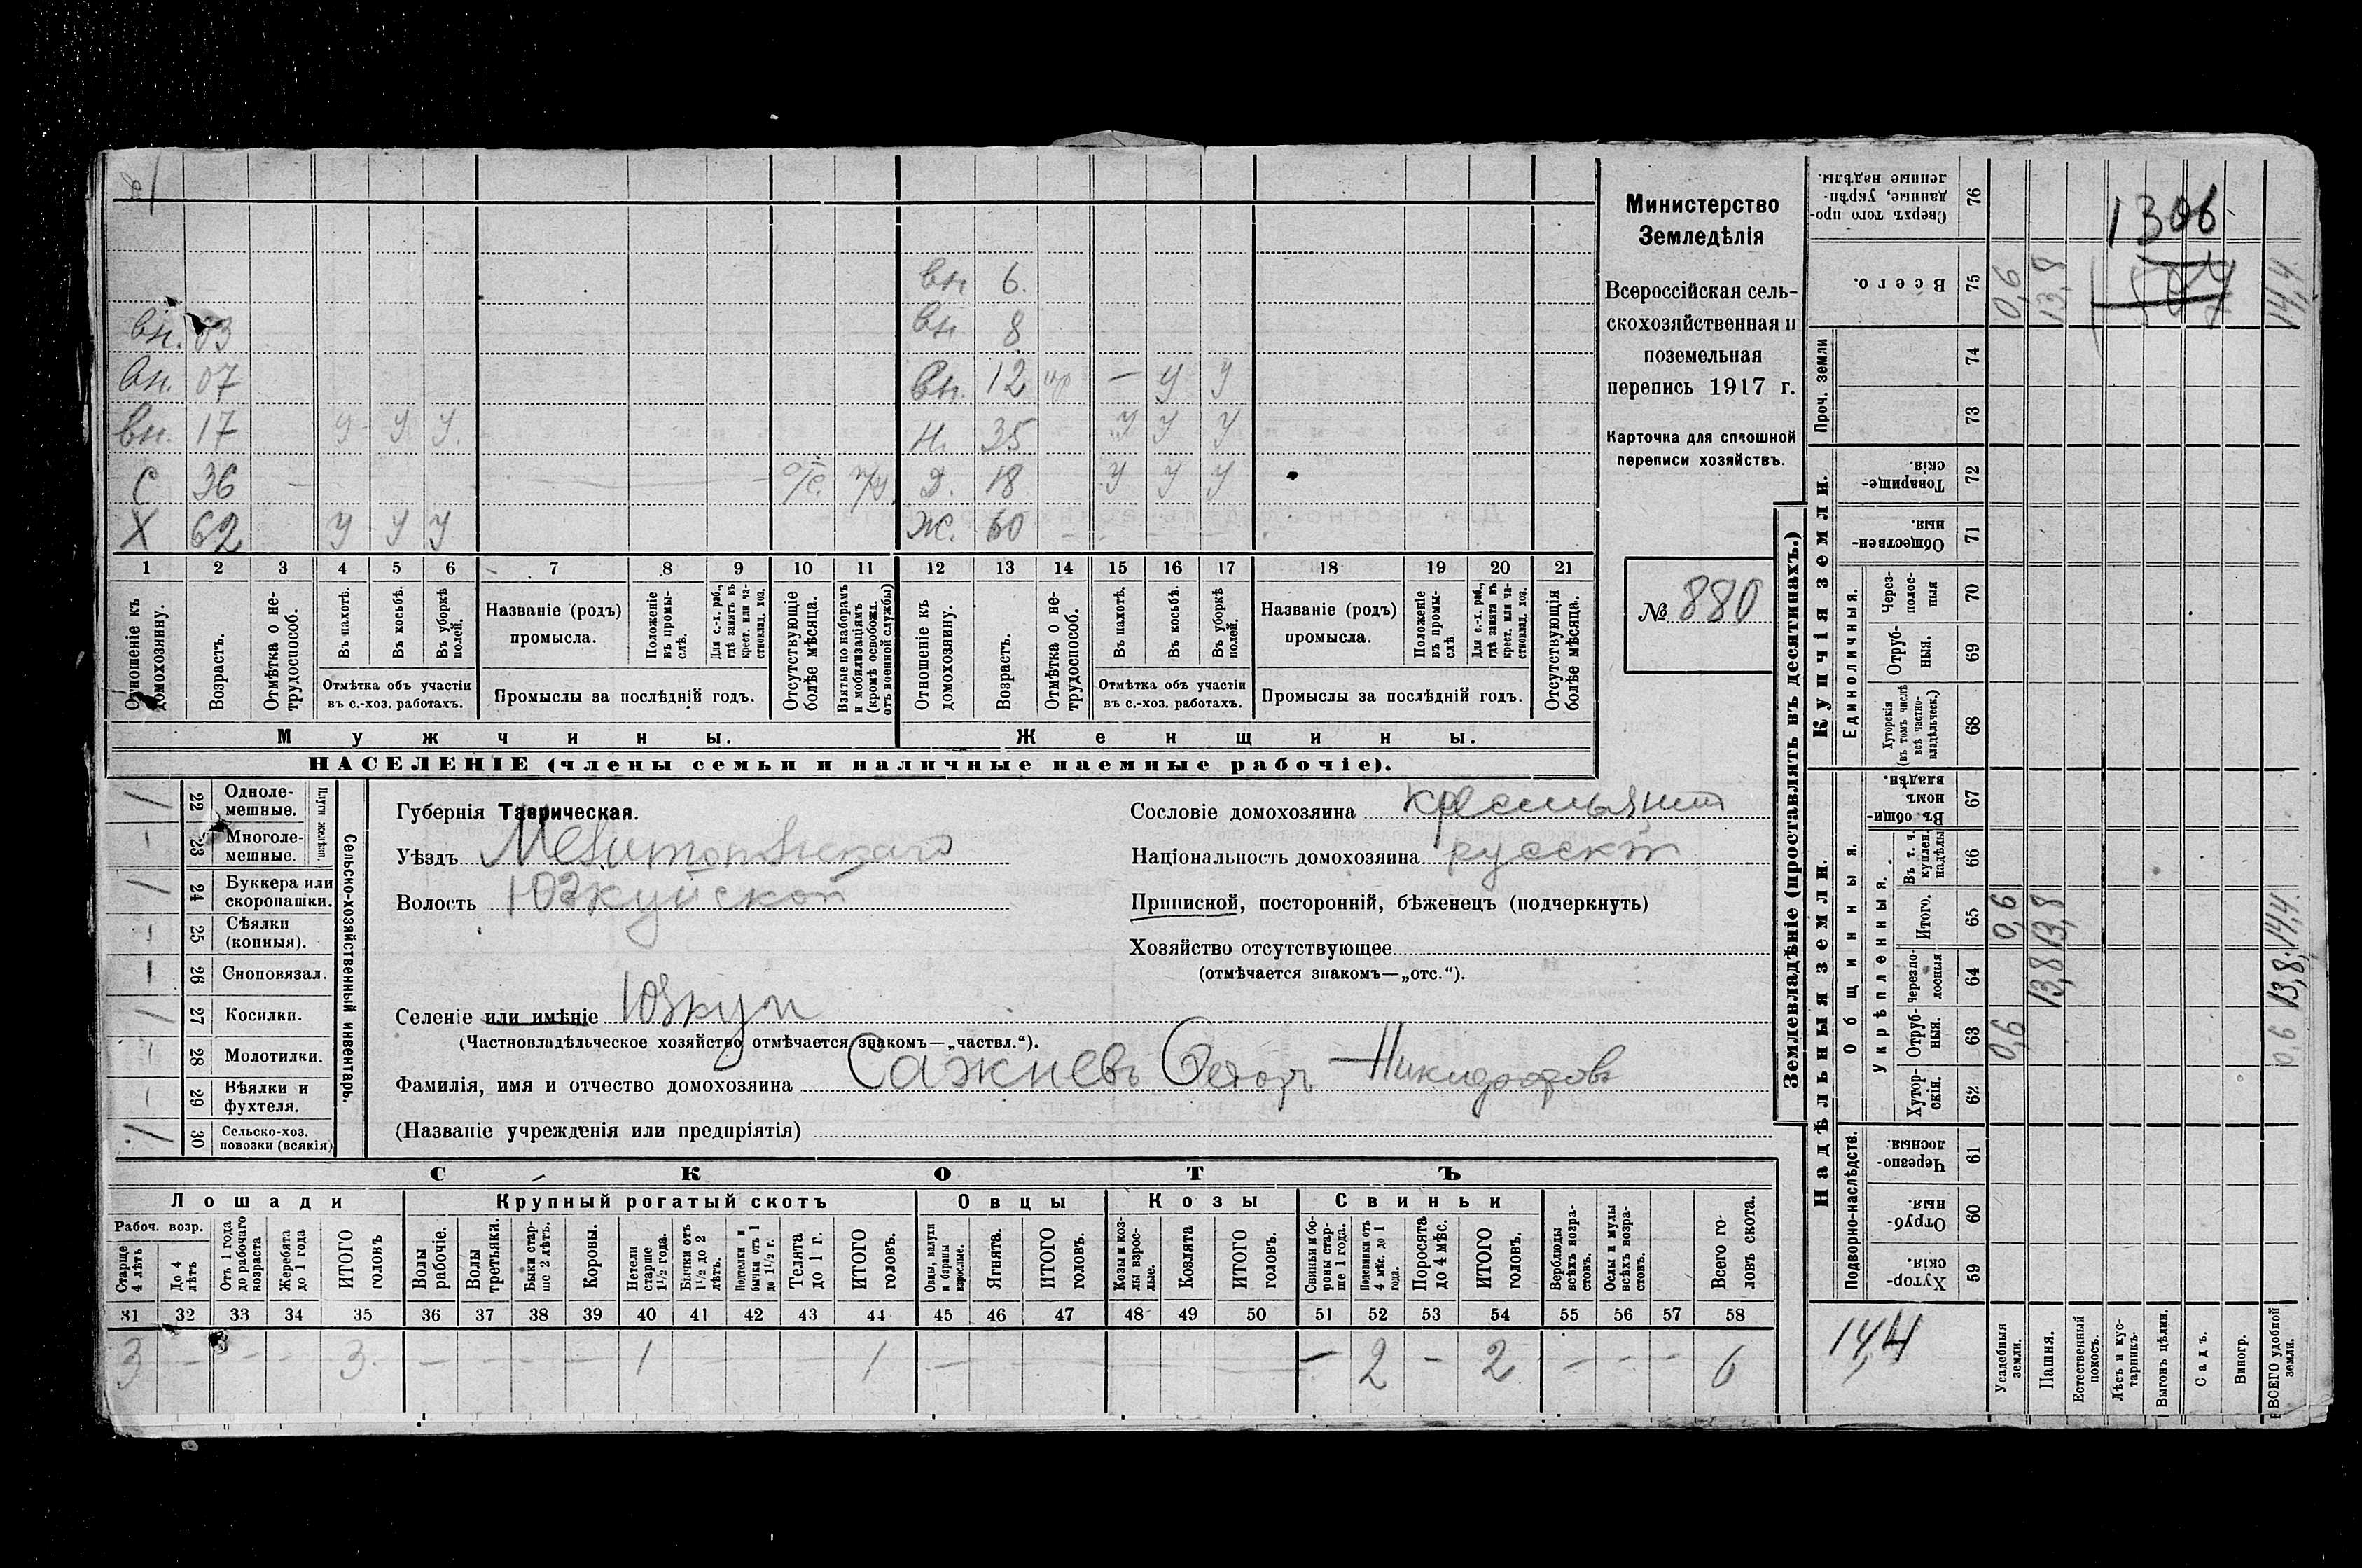 вн. 6.
вн. 03 вн 8
вн. 07 вн. 12 — у у
вн. 17 у у у. н. 35 у у у
с 36 о/с. Д. 18 у у у
Х 62 у у у ж. 60
1 2 3 4 5 6 7 8 9 10 11 12 13 14 15 16 17 18 19 20 21
Отношеніе къ домохозяину.
Возрастъ.
Отмѣтка о не-трудоспособ.
Въ пахотѣ.
Въ косьбѣ.
Въ уборкѣ полей.
Отмѣтка объ участіи
въ с.-хоз. работахъ.
Названіе (родъ)
промысла.
Положеніе въ промы-слѣ.
Для с.-х. раб., гдѣ занятъ въ крест. или ча-стновлад. хоз.
Промыслы за послѣдній годъ.
Отсутствующіе болѣе мѣсяца.
Взятые по наборамъ и мобилизаціямъ (кромѣ освобожд. отъ военной службы)
Отношеніе къ домохозяину.
Возрастъ.
Отмѣтка о не-трудоспособ.
Въ пахотѣ.
Въ косьбѣ.
Въ уборкѣ полей.
Отмѣтка объ участіи
въ с.-хоз. работахъ.
Названіе (родъ)
промысла.
Положеніе въ промы-слѣ.
Для с.-х. раб., гдѣ занята въ крест. или ча-стновлад. хоз.
Промыслы за послѣдній годъ.
Отсутствующія болѣе мѣсяца.
Мужчины. Женщины.
НАСЕЛЕНІЕ (члены семьи и наличные наемные рабочіе).
Министерство
Земледѣлія
Всероссійская сель-
скохозяйственная и
поземельная
перепись 1917 г.
Карточка для сплошной
переписи хозяйствъ.
№ 880
22 Одноле-мешные.
23 Многоле-мешные.
Плуги желѣзн.
24 Буккера или скоропашки.
25 Сѣялки (конныя).
26 Сноповязал.
27 Косилки.
28 Молотилки.
29 Вѣялки и фухтеля.
30 Сельско-хоз. повозки (всякія)
Сельско-хозяйственный инвентарь.
Губернія Таврическая.
Уѣздъ Мелитопольскаго
Волость Юзкуйской
Селеніе или имѣніе Юзкуи
(Частновладѣльческое хозяйство отмѣчается знакомъ—„частвл.“).
Фамилія, имя и отчество домохозяина Сажневъ Никифоровъ
(Названіе учрежденія или предпріятія)
Сословіе домохозяина крестьянин
Національность домохозяина русскій
Приписной, посторонній, бѣженецъ (подчеркнуть)
Хозяйство отсутствующее
(отмѣчается знакомъ—„отс.“).
СКОТЪ
Лошади Крупный рогатый скотъ Овцы Козы Свиньи
Рабоч. возр.
Старше 4 лѣтъ
До 4 лѣтъ
Отъ 1 года до рабочаго возраста
Жеребята до 1 года
ИТОГО головъ
Волы рабочіе.
Волы третьяки.
Быки стар-ше 2 лѣтъ.
Коровы.
Нетели старше 1½ года.
Бычки отъ 1½ до 2 лѣтъ.
Подтелки и бычки отъ 1 до 1½ г.
Телята до 1 г.
ИТОГО головъ.
Овцы, валухи и бараны взрослые.
Ягнята.
ИТОГО головъ.
Козы и коз-лы взрос-лые.
Козлята
ИТОГО головъ.
Свиньи и бо-ровы стар-ше 1 года.
Подсвинки отъ 4 мѣс. до 1 года.
Поросята до 4 мѣс.
ИТОГО головъ.
Верблюды всѣхъ возра-стовъ.
Ослы и мулы всѣхъ возра-стовъ.
Всего го-ловъ скота.
31 32 33 34 35 36 37 38 39 40 41 42 43 44 45 46 47 48 49 50 51 52 53 54 55 56 57 58
3 — — — 3. — — — — 1 — — — 1 — — — — — — — 2 — 2 — — — 6
Землевладѣніе (проставлять въ десятинахъ.)
Надѣльныя земли. Купчія земли.
Подворно-наслѣдств.
Общинныя.
Укрѣпленныя.
Единоличныя.
Проч. земли
Сверхъ того про-данные, укрѣп-ленные надѣлы. 76
Всего. 75 0,6 13,8 14,4
74
73
Товарище-скія. 72
Обществен-ныя. 71
Через-полос-ныя 70
Отруб-ныя. 69
Хуторскія (въ томъ числѣ всѣ частно-владѣльческ.) 68
Въ общи-номъ владѣн. 67
Въ т. ч. куплен. надѣлы 66
Итого. 65 0,6 13,8 14,4.
Черезпо-лосныя 64 13,8 13,8
Отруб-ныя. 63 0,6 0,6
Хутор-скія. 62
Черезпо-лосныя. 61
Отруб-ныя. 60
Хутор-скія. 59
1306
14,4
Усадебныя земли.
Пашня.
Естественный покосъ.
Лѣсъ и кус-тарникъ.
Выгонъ цѣлин.
Садъ.
Виногр.
ВСЕГО удобной земли.